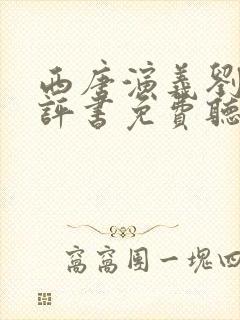 西唐演義劉
評書免費聽
窩窩團一塊四